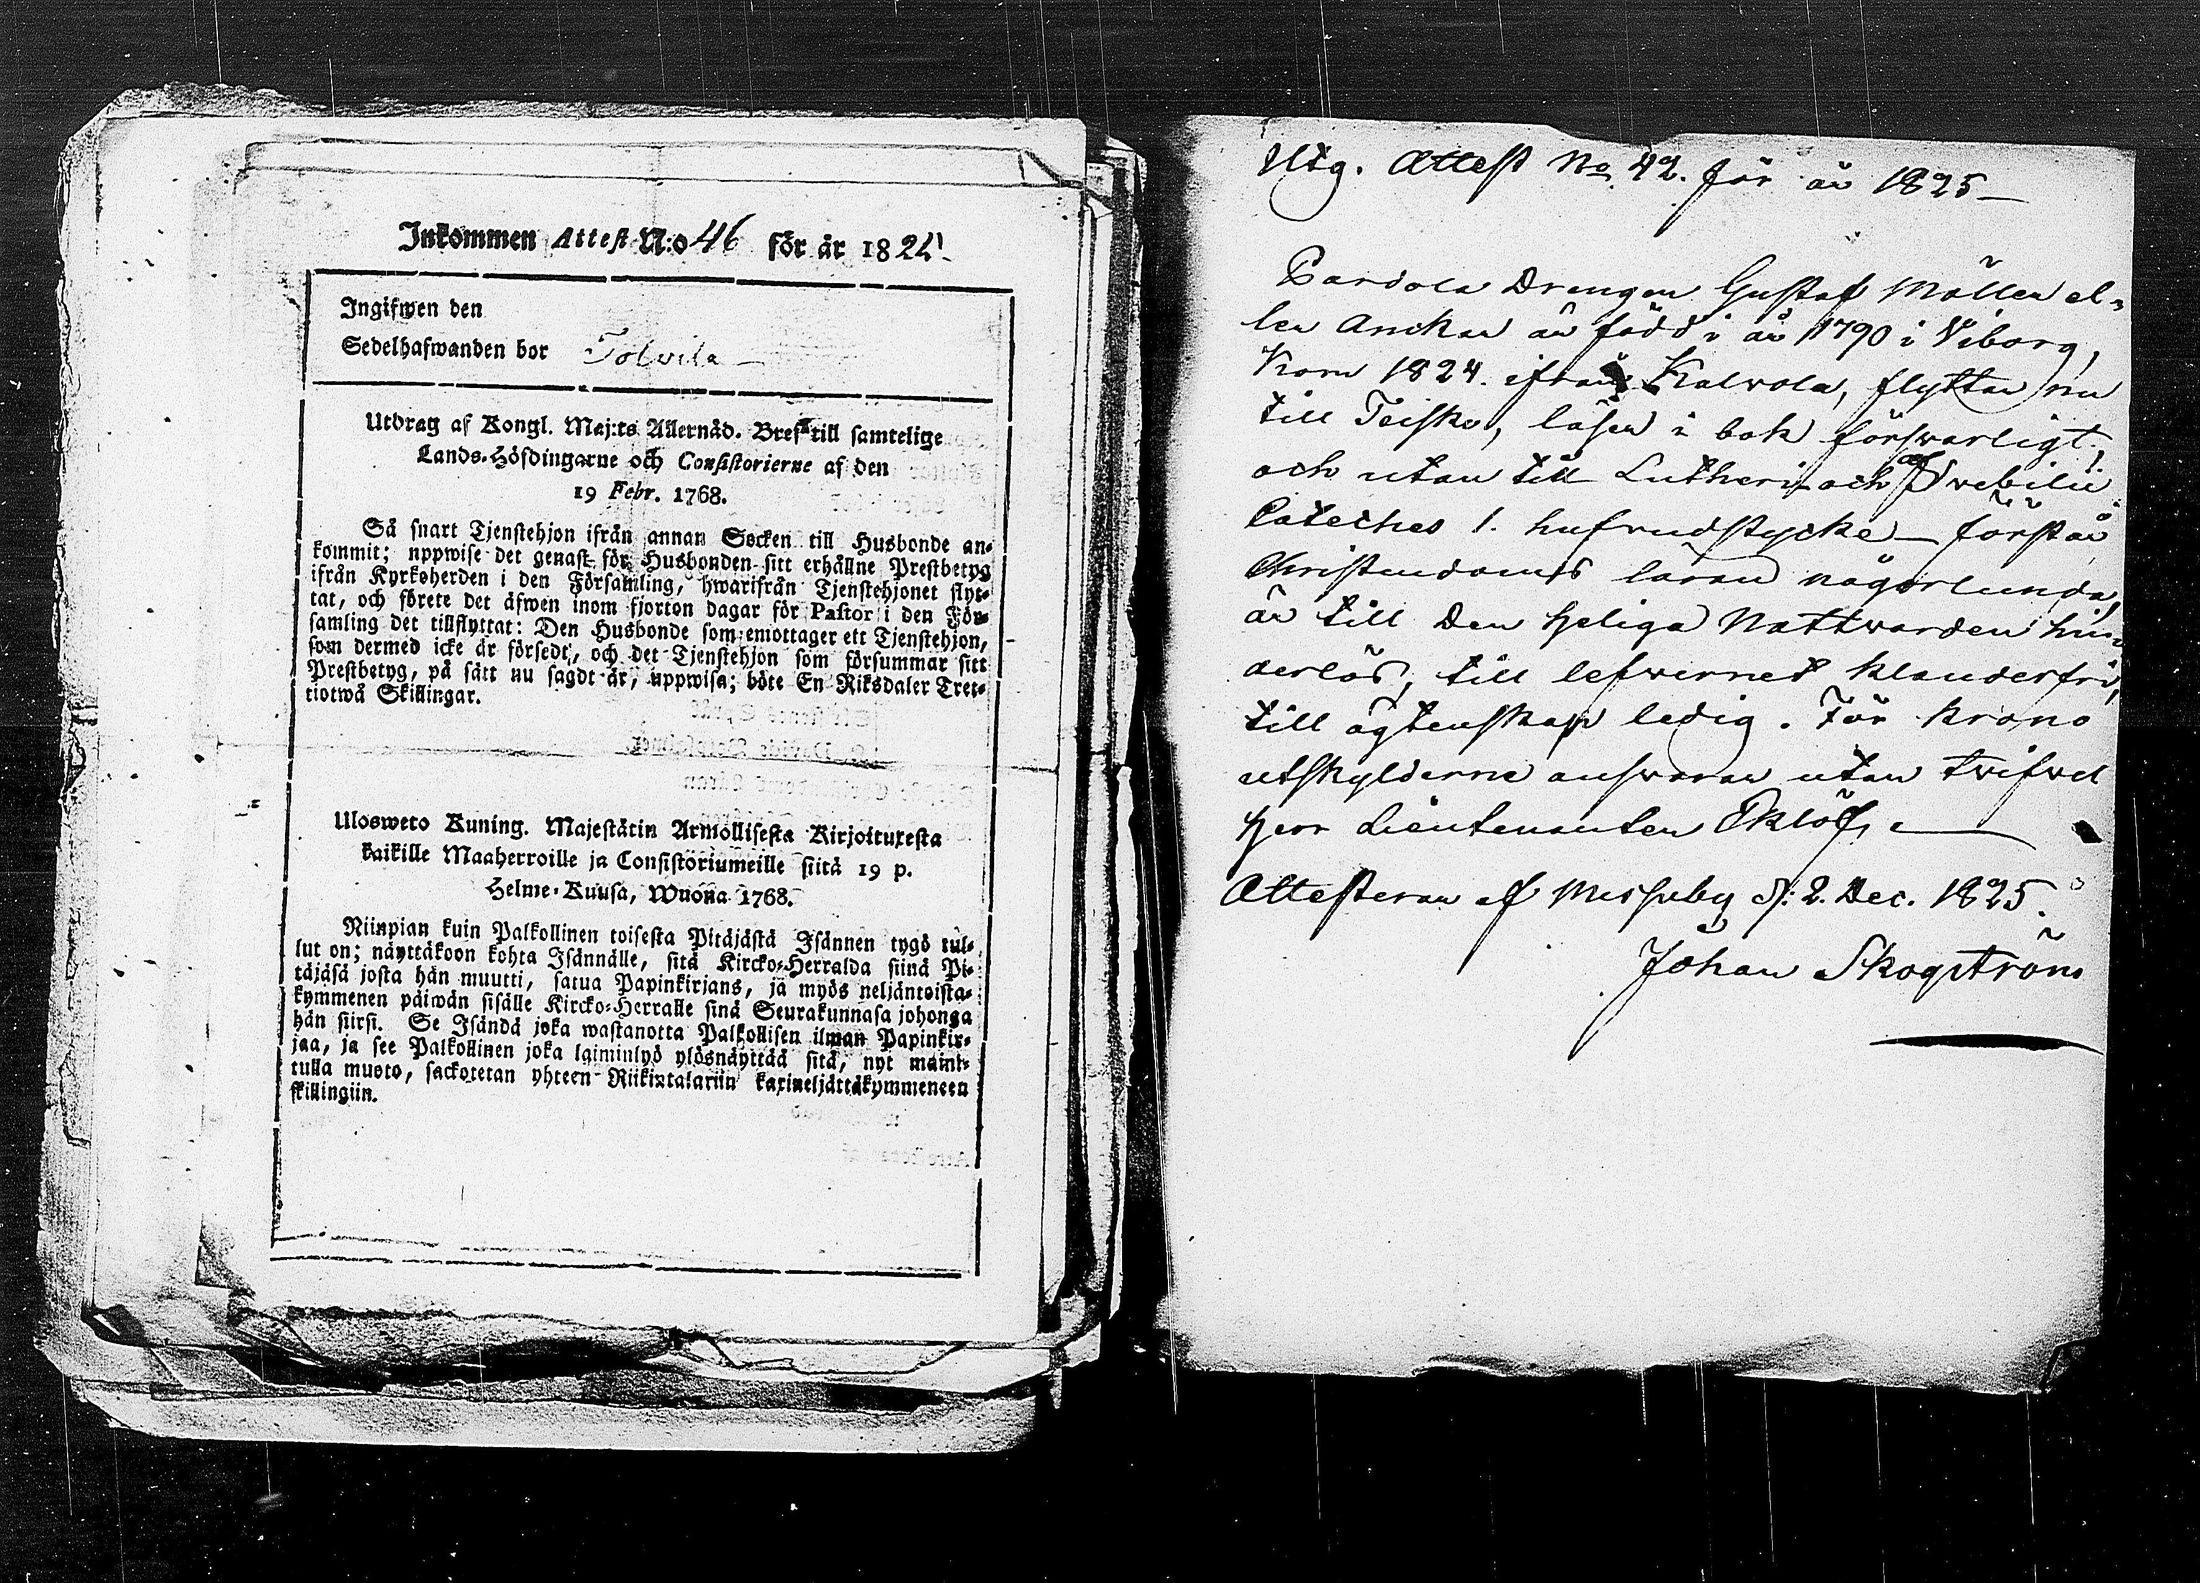 Inkommen Attest N:o 46 för år 1824.
Ingifwen den
Sedelhafwanden bor Tolvila
Utdrag af Kongl. Maj:ts Allernåd. Bref till samtelige
Lands-Höfdingarne och Consistorierne af den
19 Febr. 1768.
Så snart Tjenstehjon ifrån annan Socken till Husbonde an-
kommit; uppwise det genast för Husbonden sitt erhållne Prestbetyg
ifrån Kyrkoherden i den Församling, hwarifrån Tjenstehjonet flyt-
tat, och förete det äfwen inom fjorton dagar för Pastor i den För-
samling det tillflyttat: Den Husbonde som emottager ett Tjenstehjon,
som dermed icke är försedt, och det Tjenstehjon som försummar sitt
Prestbetyg, på sätt nu sagdt är, uppwisa; böte En Riksdaler Tret-
tiotwå Skillingar.
Ulosweto Kuning. Majestätin Armollisesta Kirjoituxesta
kaikille Maaherroille ja Consistoriumeille siitä 19 p.
Helme-Kuusa, Wuonna 1768.
Niinpian kuin Palkollinen toisesta Pitäjästä Isännen tygö tul-
lut on; näyttäkoon kohta Isännälle, sitä Kircko-Herralda siinä Pi-
täjäsä josta hän muutti, saatua Papinkirjans, ja myös neljäntoista-
kymmenen päiwän sisälle Kircko-Herralle sinä Seurakunnasa johonga
hän siirsi. Se Isändä joka wastanotta Palkollisen ilman Papinkir-
jaa, ja see Palkollinen joka laiminlyö ylösnäyttää sitä, nyt maini-
tulla muoto, sackotetan yhteen Riikintalariin kaxineljättäkymmeneen
skillingiin.
Utg. Attest No 42. för år 1825
Pardola Drengen Gustaf Möller el-
ler Anckar är född i år 1790 i Viborg,
Kom 1824. ifrån Kalvola, flyttar nu
till Teisko, läser i bok försvarligt,
och utan till Lutheri och af Svebilii
Cateches 1. hufvudstycke förstår
Christendomens läran någorlunda,
är till Den heliga Nattvarden hin-
derlös, till lefvernet klanderfri,
till ägtenskap ledig. För krono
utskylderne answarar utan twifvel
Herr Lieutenanten Eklöf,
Attesterar af Messuby d: 2. Dec. 1825.
Johan Skogström